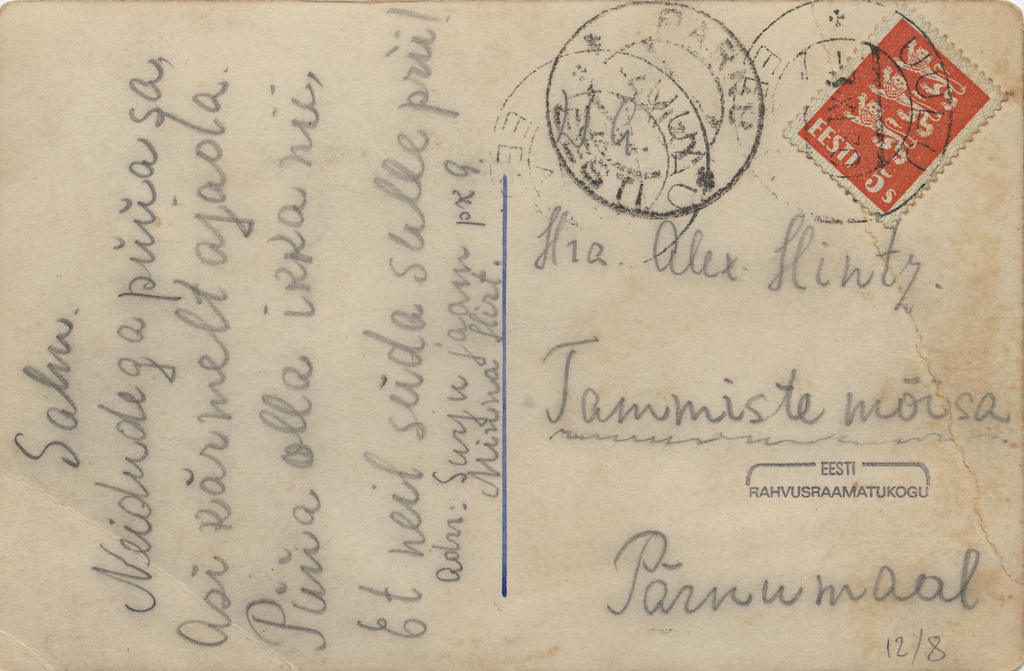 Salm.
Neidudega püüa sa,
Asi kärmelt ajada.
Püüa olla ikka nii,
Et neil süda sulle prii!
adr: Surju jaam pk 9.
Minna Hirt.
PÄRNU
EESTI
EESTI
5s
Hra. Alex Hintz.
Tammiste mõisa
EESTI
RAHVUSRAAMATUKOGU
Pärnumaal
12/8